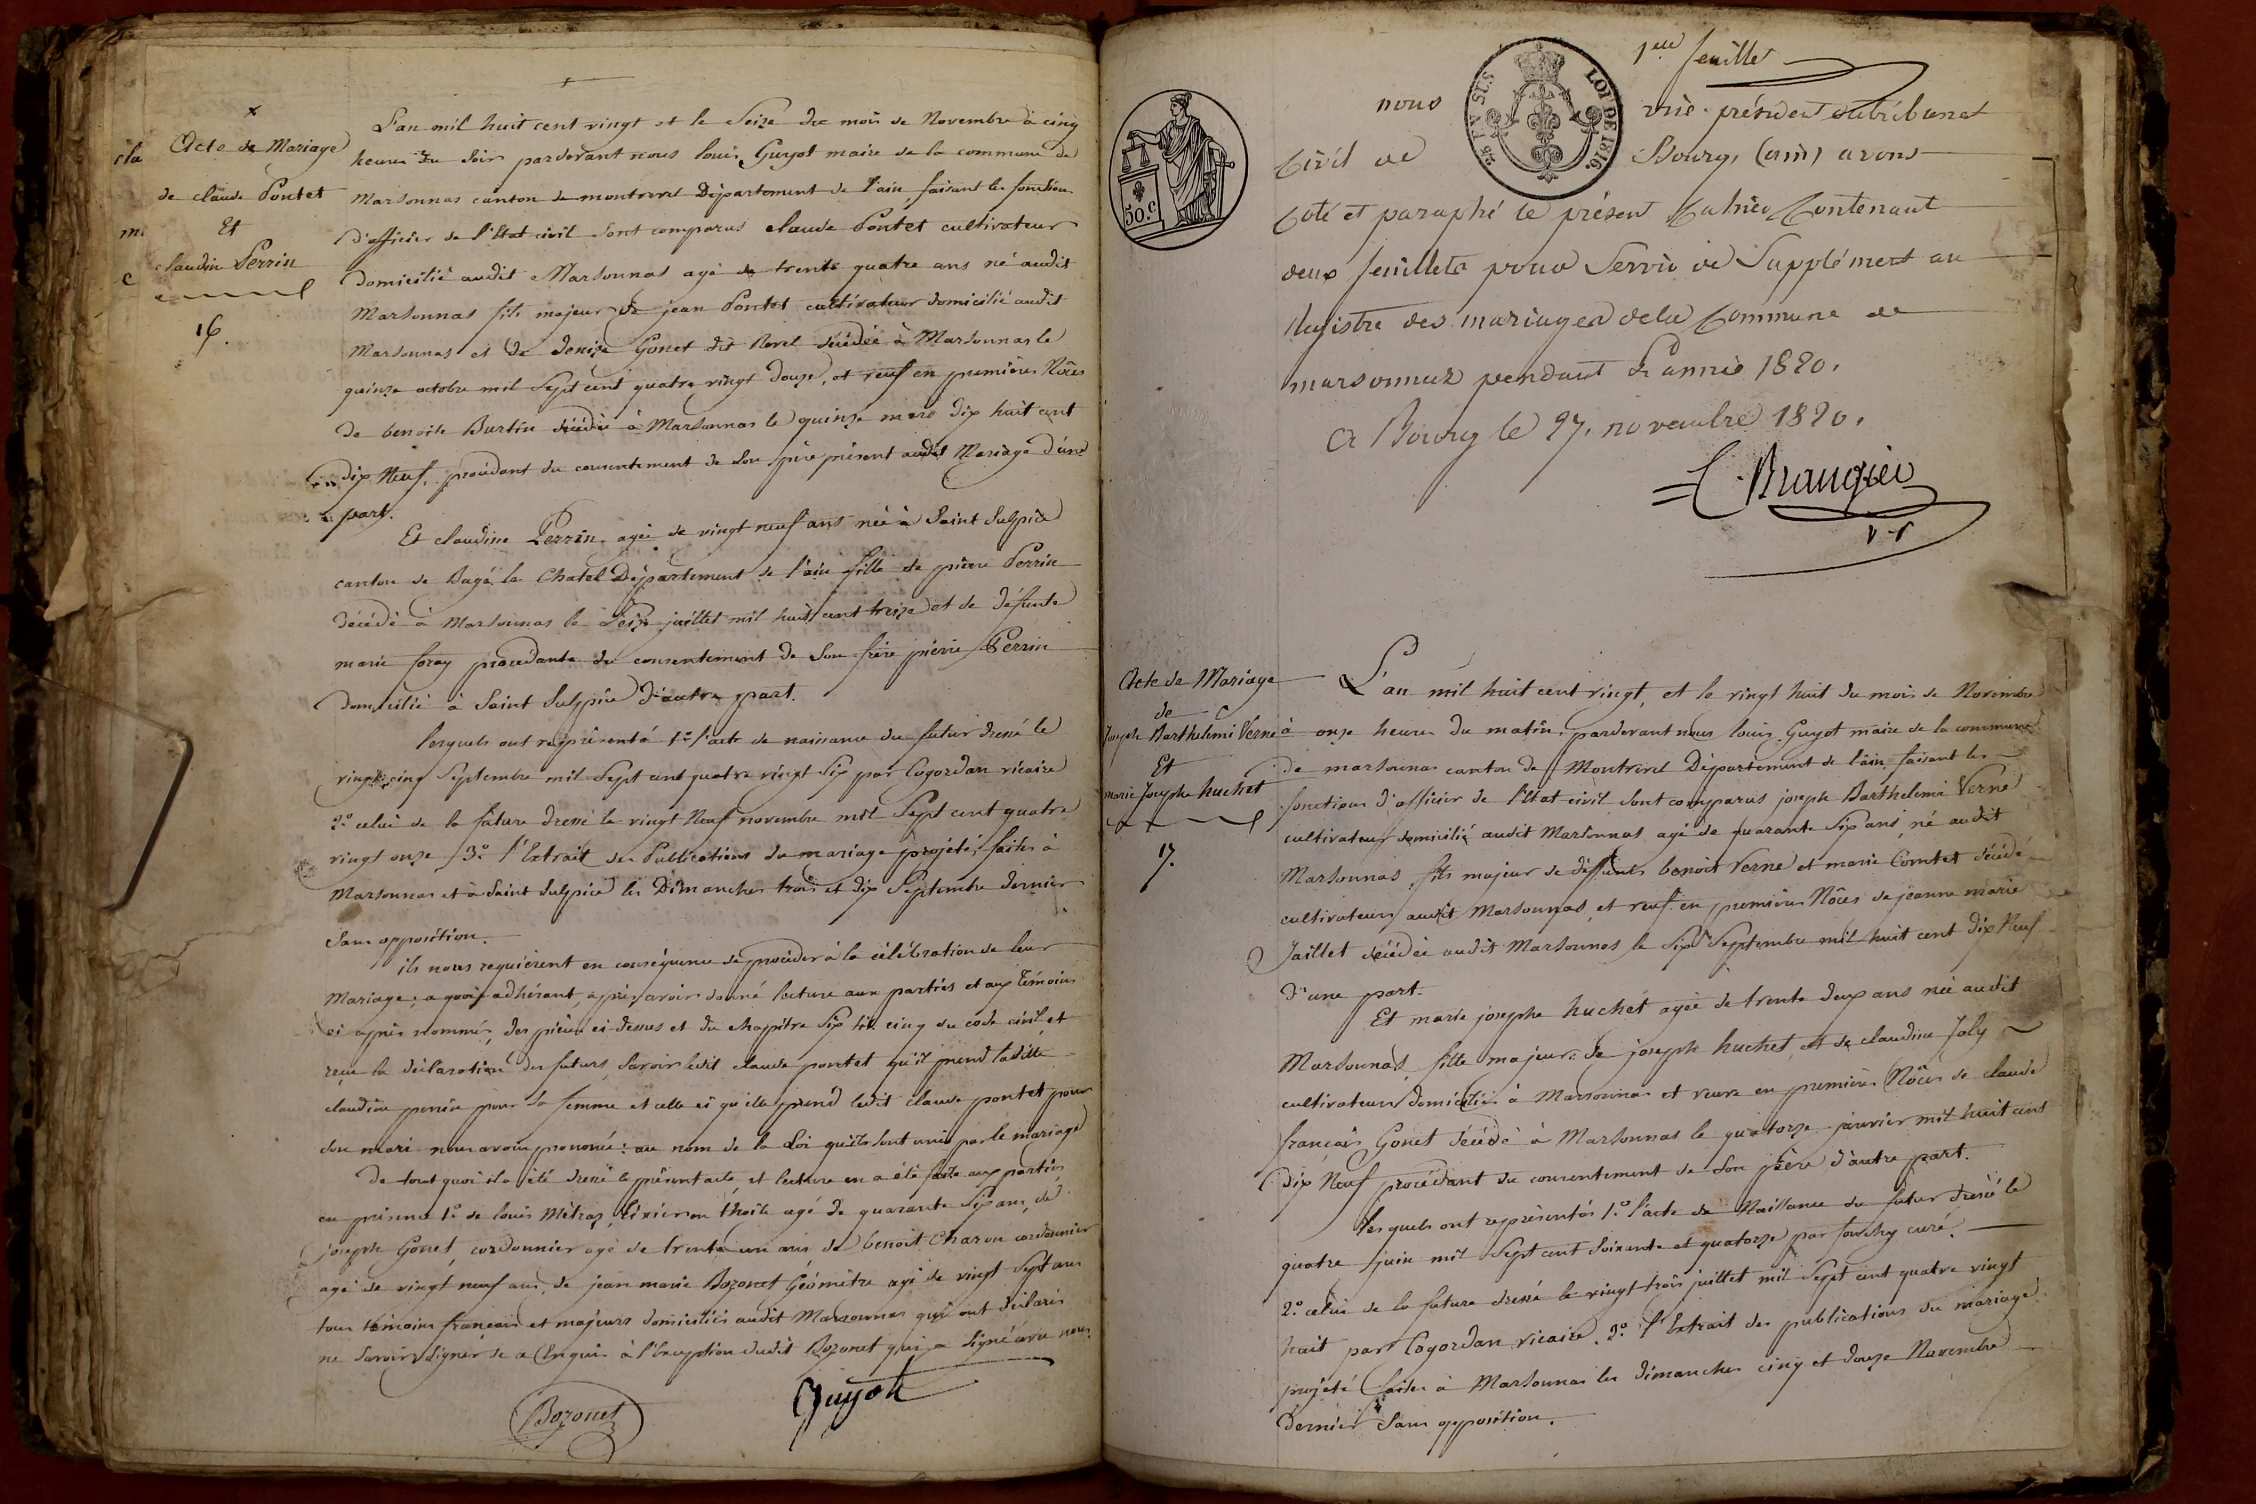 Acte de Mariage
de claude Pontet
Et
claudine Perrin
16.
L'an mil huit cent vingt et le Seize du mois de Novembre à cinq
heures du Soir pardevant nous louis Guyot maire de la commune de
Marsonnas canton de montrevel Département de l'ain, faisant les fonctions
d'officier de l'Etat civil Sont comparus claude Pontet cultivateur
domicilié audit Marsonnas agé de trente quatre ans né audit
Marsonnas fils majeur de jean Pontet cultivateur domicilié audit
Marsonnas et de denise Gonet dit Revel décédée à Marsonnas le
quinze octobre mil Sept cent quatre vingt douze, et veuf en premières Nôces
de benoite Burtin décédée à Marsonnas le quinze mars dix huit cent
dix Neuf, procédant du consentement de Son père présent audit Mariage d'une
part.
Et claudine Perrin agée de vingt neuf ans née à Saint Sulpice
canton de Bagé le Chatel Département de l'ain fille de pierre Perrin
décédé à Marsonnas le Seize juillet mil huit cent treize et de défunte
marie foray procedante du consentement de Son frère pierre Perrin
domicilié à Saint Sulpice d'autre part.
lesquels ont représenté 1.º l'acte de naissance du futur dressé le
vingt cinq Septembre mil Sept cent quatre vingt Six par Cogordan vicaire
2.º celui de la future dressé le vingt Neuf novembre mil Sept cent quatre
vingt onze 3.º l'Extrait des Publications du mariage projété, faites à
Marsonnas et à Saint Sulpice les Dimanches trois et dix Septembre dernier
Sans opposition.
ils nous requièrent en conséquence de procéder à la célébration de leur
Mariage; a quoi adhérant, après avoir donné lecture aux parties et aux témoins
ci après nommés, des pièces ci-dessus et du chapitre Six titre cinq du code civil, et
reçu la déclaration des futurs, Savoir ledit claude pontet qu'il prend ladite
claudine perrin pour Sa femme et celle ci qu'elle prend ledit claude pontet pour
Son mari nous avons prononcé: au nom de la Loi qu'ils Sont unis par le mariage
De tout quoi il a été dressé le présent acte, et lecture en a été faite aux parties
en présence 1.º de louis Mitras, agé de quarante Six ans, de
joseph Gonet, cordonnier agé de trente un ans de benoit Charon cordonnier
agé de vingt neuf ans, de jean marie Bozonet Géomètre agé de vingt Sept ans
tous témoins français et majeurs domiciliés audit Marsonnas qui ont déclarés
ne Savoir Signer de ce Enquis à l'Exception dudit Bozonet qui a Signé avec nous.
Bozonet
Guyot
1.ere feuillet
50.c
25 EN SUS
LOI DE 1816.
nous vice-président du tribunal
Civil de Bourg, (ain) avons
Coté et paraphé le présent Cahier Contenant
deux feuillets pour Servir de Supplément au
Registre des mariages de la Commune de
marsonnaz pendant L'année 1820.
a Bourg le 27. novembre 1820.
Brangier
v-p
Acte de Mariage
de
Joseph Barthelemi Verne
Et
marie Josephe huchet
17.
L'an mil huit cent vingt, et le vingt huit du mois de Novembre
à onze heures du matin, pardevant nous louis Guyot maire de la commune
de marsonnas canton de Montrevel Département de l'ain, faisant les
fonctions d'officier de l'Etat civil Sont comparus joseph Barthelemi Verne
cultivateur domicilié audit Marsonnas agé de quarante Six ans, né audit
Marsonnas, fils majeur de défunts benoit Verne et marie Comtet décédés
cultivateurs audit Marsonnas, et veuf en premières Nôces de jeanne marie
Jaillet décédée audit Marsonnas le Six Septembre mil huit cent dix Neuf
d'une part.
Et marie josephe huchet agée de trente deux ans née audit
Marsonnas, fille majeure de joseph huchet, et de claudine Joly
cultivateurs domiciliés à Marsonnas et veuve en premières Nôces de claude
français Gonet décédé à Marsonnas le quatorze janvier mil huit cent
dix Neuf procédant du consentement de Son père d'autre part.
lesquels ont représentés 1.º l'acte de Naissance du futur dressé le
quatre juin mil Sept cent Soixante et quatorze par curé.
2.º celui de la future dressé le vingt trois juillet mil Sept cent quatre vingt
huit par Cogordan vicaire, 3.º l'Extrait des publications du mariage
projeté faites à Marsonnas les dimanches cinq et douze Novembre
dernier Sans opposition.